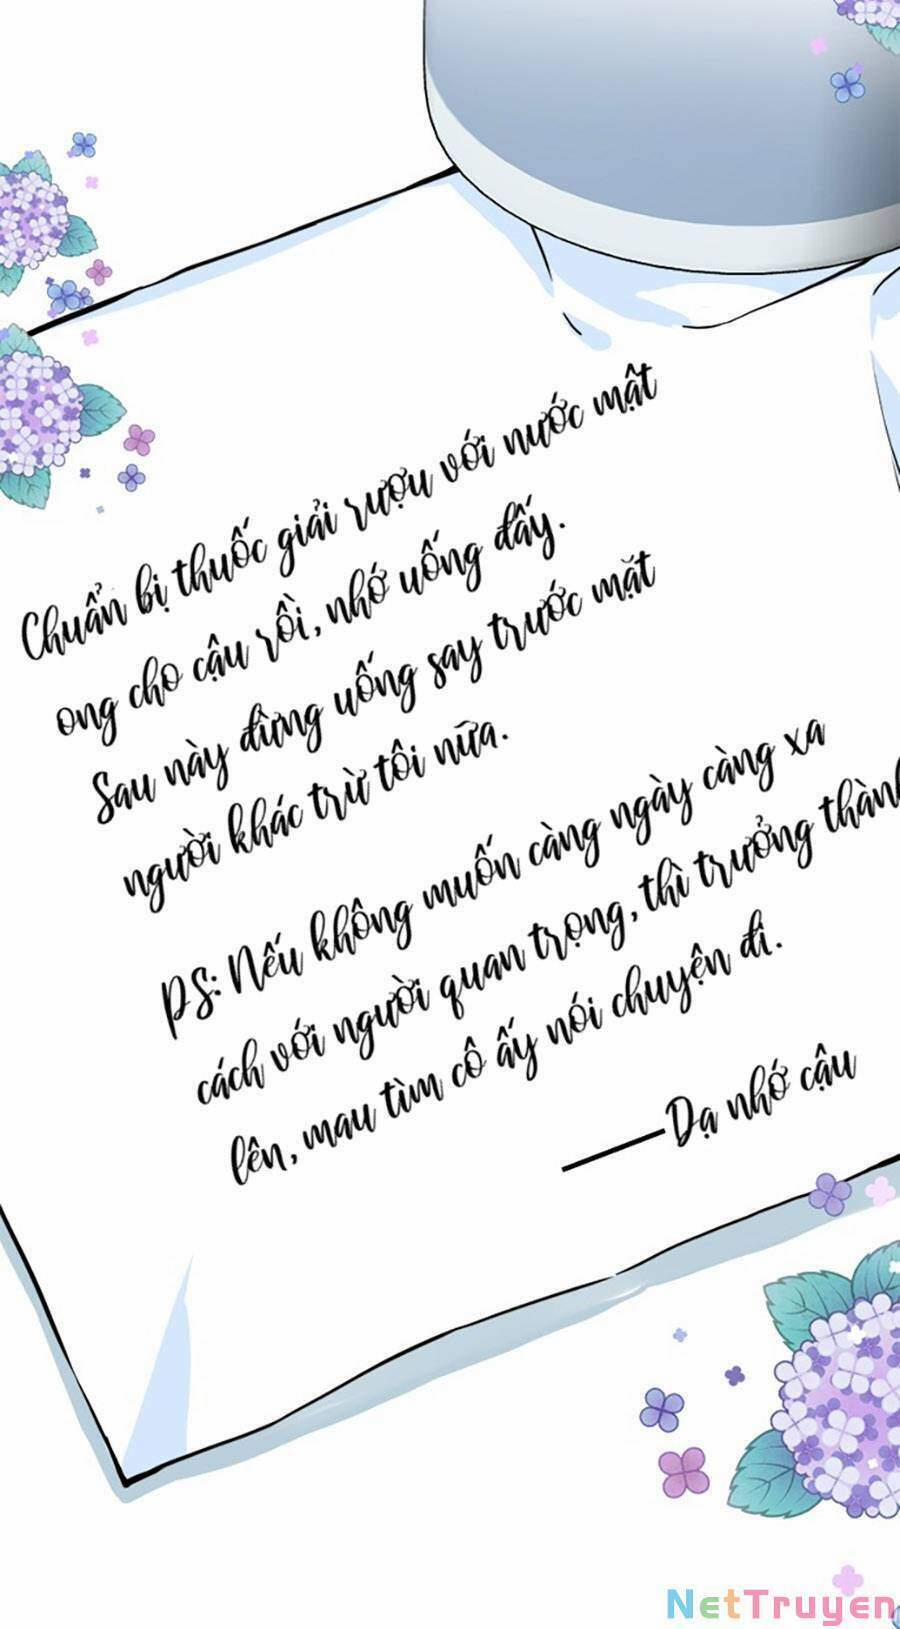 Chuẩn bị thuốc giải rượu với nước mật
ong cho cậu rồi, nhớ uống đấy.
Sau này đừng uống say trước mặt
người khác trừ tôi nữa.
PS: Nếu không muốn càng ngày càng xa
cách với người quan trọng, thì trưởng thành
lên, mau tìm cô ấy nói chuyện đi.
——Dạ nhớ cậu
NetTruyen